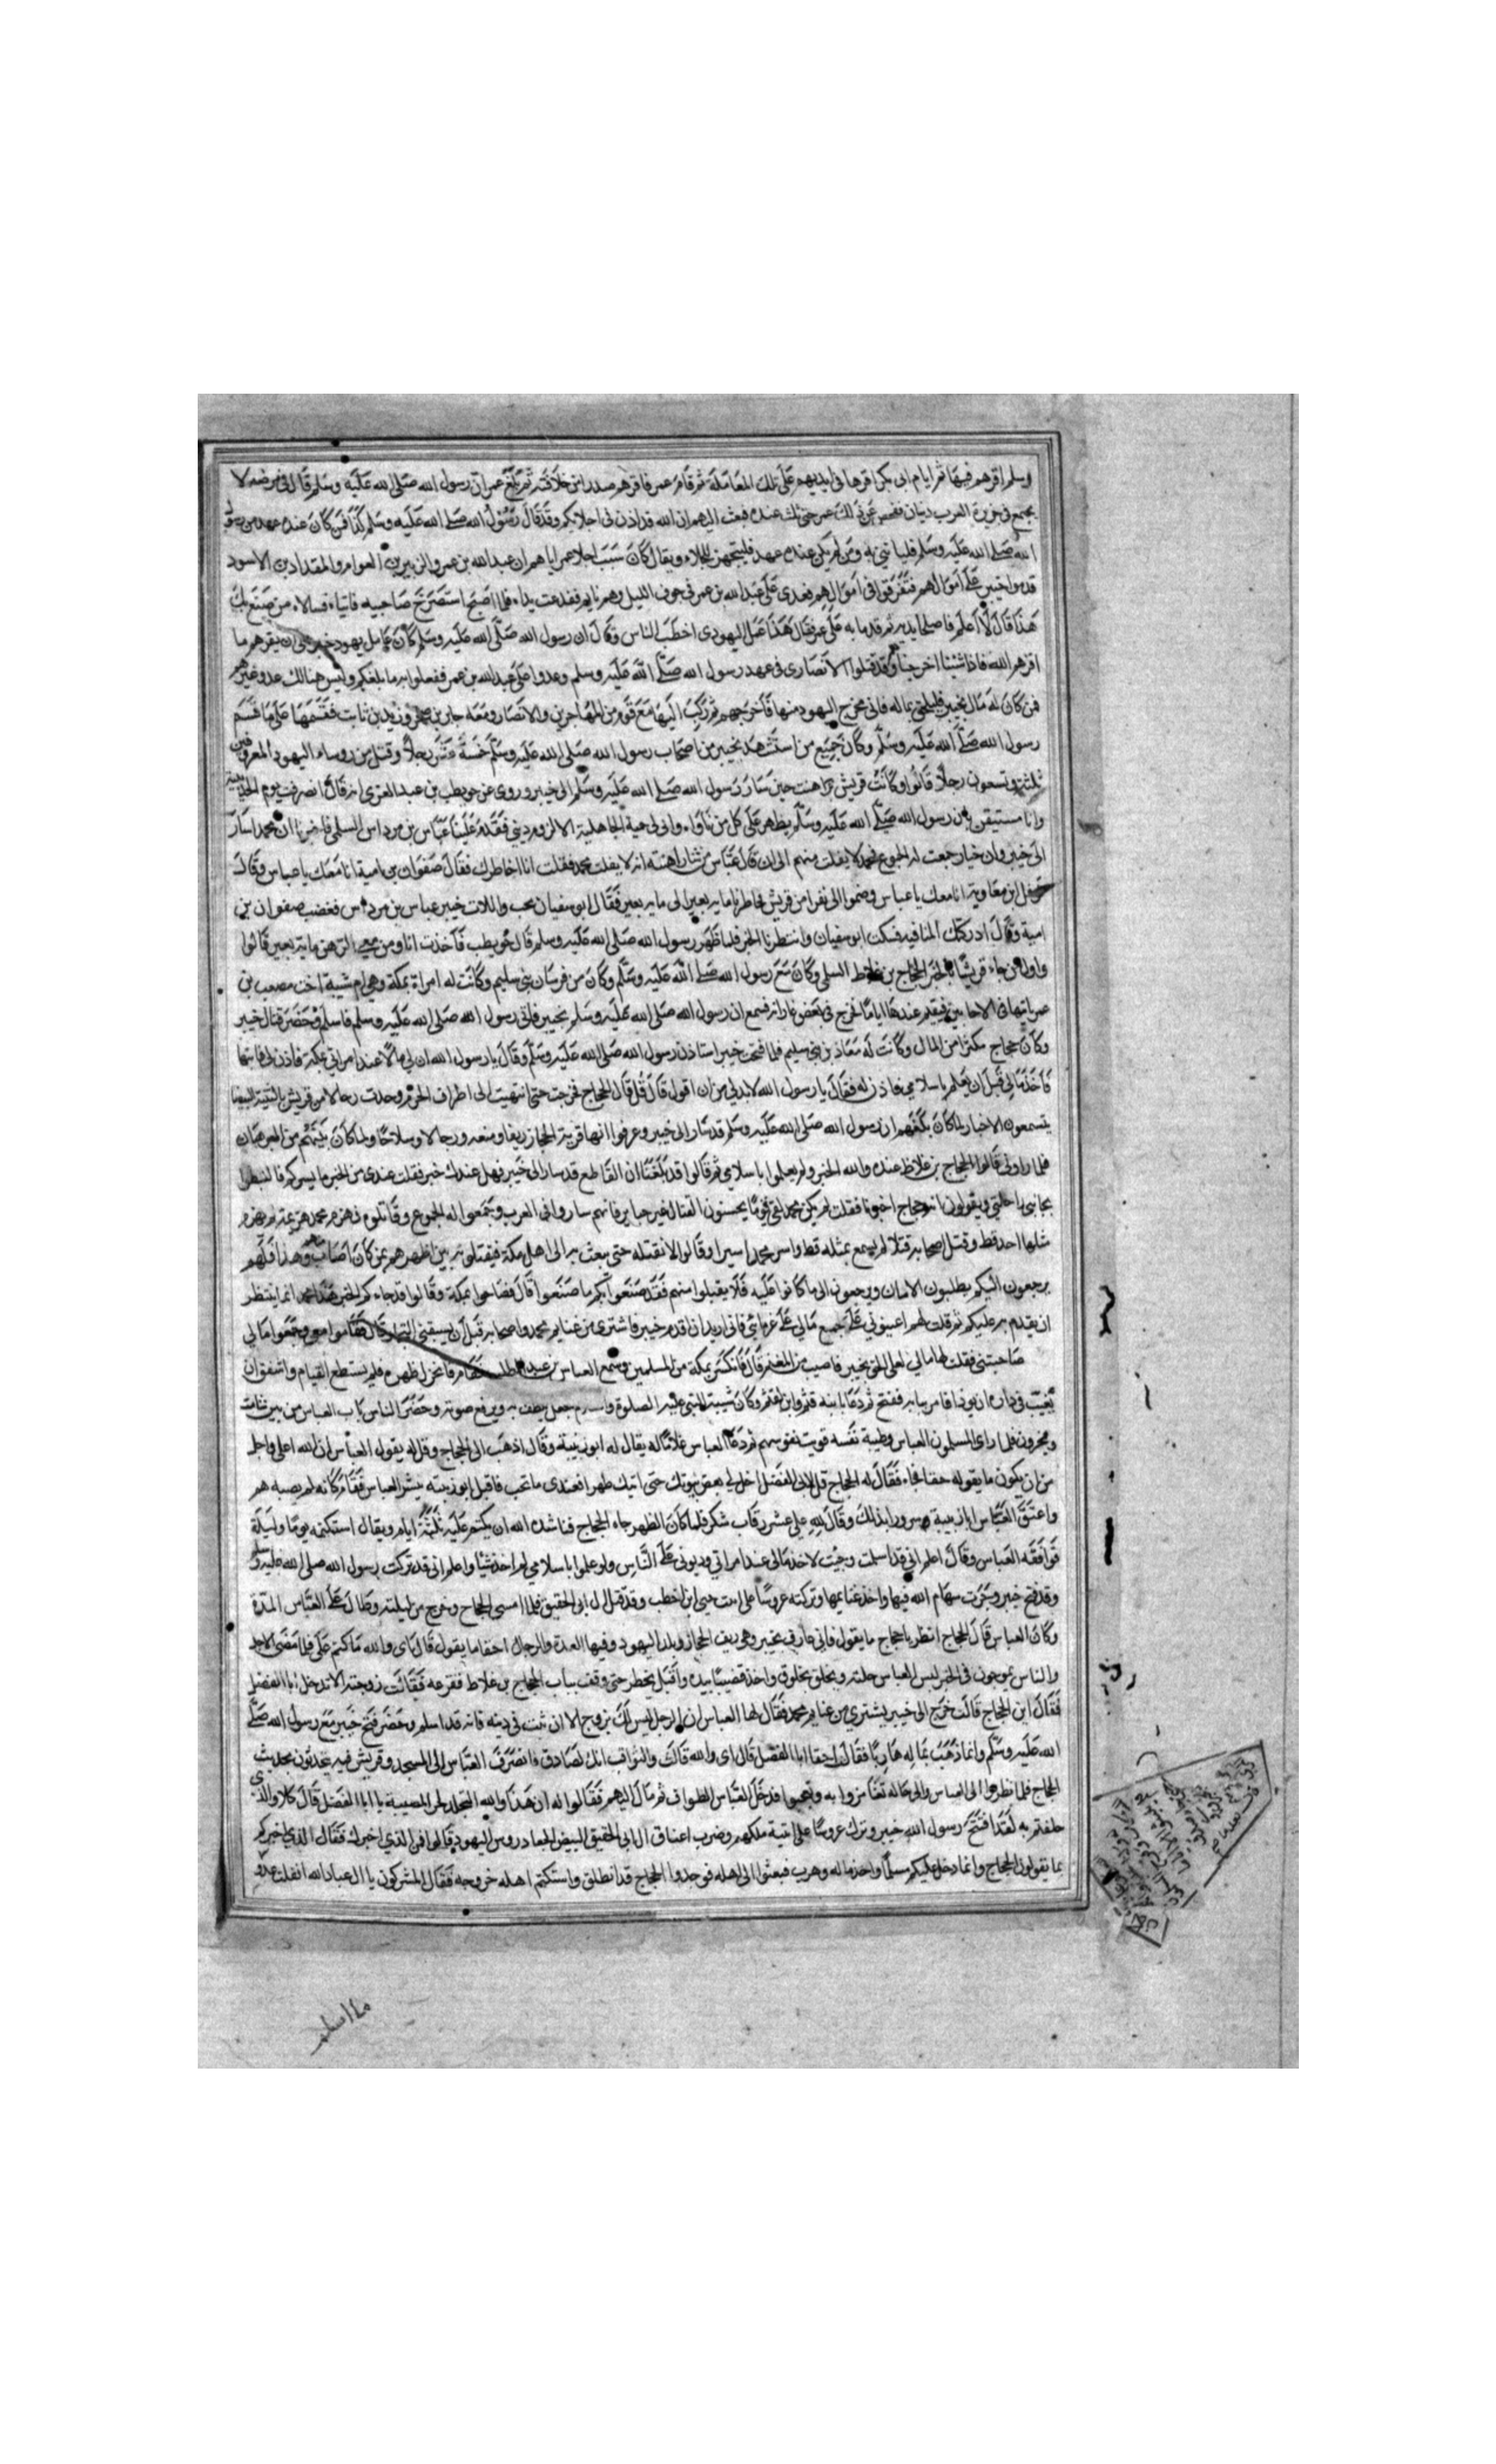 وسلم اقرهم فيها ثم ايام ابى بكر اقرها فى ايديهم على تلك المعاملة ثم قام عمر فاقرهم صدرا من خلافته ثم بلغ عمر ان رسول الله صلى الله عليه وسلم قال فى مرضه لا
يجتمع فى جزيرة العرب دينان ففحص عن ذلك عمر حتى ثلث عنده فبعث اليهم ان الله قد اذن فى اجلائكم وقد قال رسول الله صلى الله عليه وسلم كذا فمن كان عنده عهد من رسول
الله صلى الله عليه وسلم فلياتنى به ومن لم يكن عنده عهد فليتجهز للجلاء ويقال كان سبب اجلاء عمر اياهم ان عبد الله بن عمر والزبير بن العوام والمقداد بن الاسود
قدموا خيبر على اموالهم فتفرقوا فى اموالهم فعدى على عبد الله بن عمر فى جوف الليل وهو نايم ففدعت يداه فلما اصبح استصرخ صاحبيه فاتياه فسالاه من صنع بك
هذا قال لا اعلم فاصلحا يديه ثم قدما به على عمر فقال هذا عمل اليهودى اخطب الناس وقال ان رسول الله صلى الله عليه وسلم كان عامل يهود خيبر على ان يقرهم ما
اقرهم الله فاذا شئنا اخرجنا وقد قتلوا الانصارى فى عهد رسول الله صلى الله عليه وسلم وعدوا على عبد الله بن عمر ففعلوا به ما بلغكم وليس هنالك عدو غيرهم
فمن كان له مال بخيبر فليلحق بماله فانى مخرج اليهود منها فاخرجهم ثم ركب اليها مع قوم من المهاجرين والانصار ومعه جابر بن صخر وزيد بن ثابت فقسمها على ما قسم
رسول الله صلى الله عليه وسلم وكان جميع من استشهد بخيبر من اصحاب رسول الله صلى الله عليه وسلم خمسة عشر رجلا وقتل من روساء اليهود المعروفين
ثلثة وتسعون رجلا قالوا وكانت قريش تراهنت حين سار رسول الله صلى الله عليه وسلم الى خيبر وروى عن حويطب بن عبد العزى انه قال انصرفت يوم الحديبية
وانا مستيقن بان رسول الله صلى الله عليه وسلم يظهر على كل من ناواه وابى لى حمية الجاهلية الا لزوم دينى فقدم علينا عباس بن مرداس السلمى فاخبرنا ان محمدا سار
الى خيبر وان خيار جمعت له الجموع فمحمد لا يفلت منهم الى ان قال عباس من شاء راهنته انه لا يفلت محمد فقلت انا اخاطرك فقال صفوان بن امية انا معك يا عباس وقال
نوفل ابن معاوية انا معك يا عباس وضموا الى نفرا من قريش فخاطرنا ماية بعير الى ماية بعير فقال ابو سفيان نحب واللات خيبر عباس بن مرداس فغضب صفوان بن
امية وقال ادركتك المنافية فسكت ابو سفيان وانتظرنا الخبر فلما ظهر رسول الله صلى الله عليه وسلم قال حويطب فاخذت انا ومن معى الرهن ماية بعير قالوا
واول من جاء قريشا بالخبر الحجاج بن غلاط السلمى وكان مع رسول الله صلى الله عليه وسلم وكان من فرسان بنى سليم وكانت له امراة بمكة وهى ام شيبة اخت مصعب بن
عمير ياتيها فى الاحايين فيقيم عندها اياما فخرج فى بعض غاراته فسمع ان رسول الله صلى الله عليه وسلم بخيبر فاتى رسول الله صلى الله عليه وسلم فاسلم وحضر قتال خيبر
وكان حجاج مكثرا من المال وكانت له معادن بنى سليم فلما فتحت خيبر استاذن رسول الله صلى الله عليه وسلم وقال يا رسول الله ان لى مالا عند امراتى بمكة فاذن لى فاتيها
فاخذ مالى قبل ان يعلم باسلامى فاذن له فقال يا رسول الله لابد لى من ان اقول قال قل قال الحجاج فخرجت حتى انتهيت الى اطراف الحرم وجدت رجالا من قريش بالثنية البيضا
يتسمعون الاخبار لما كان بلغهم ان رسول الله صلى الله عليه وسلم قد سار الى خيبر وعرفوا انها قرية الحجاز ريفا ومنعة ورجالا وسلاحا ولما كان بينهم من المراهنات
فلما راونى قالوا الحجاج بن غلاط عنده والله الخبر ولم يعلموا باسلامى ثم قالوا قد بلغنا ان القاطع قد سار الى خيبر فهل عندك خبر فقلت عندى من الخبر ما يسركم فالتبطوا
بجانبى راحلتى ويقولون ايه حجاج اخبرنا فقلت لم يكن محمد لقى قوما يحسنون القتال غير خيابر فانهم ساروا فى العرب وجمعوا له الجموع وقاتلوه فهزم محمد هزيمة لم يهزم
مثلها احد قط وقتل اصحابه قتلا لم يسمع بمثله قط واسر محمد اسيرا وقالوا لا نقتله حتى نبعث به الى اهل مكة فيقتلونه بين اظهرهم بمن كان اصاب منهم وهذا فلهم
يرجعون اليكم يطلبون الامان ويرجعون الى ما كانوا عليه فلا تقبلوا منهم فقد صنعوا بكم ما صنعوا قال فصاحوا بمكة وقالوا قد جاءكم الخبر هذا محمد انما ينتظر
ان يقدم به عليكم ثم قلت لهم اعينونى على جمع مالى على غرمائى فانى اريد ان اقدم خيبر فاشترى من غنايم محمد واصحابه قبل ان يسبقنى التجار قال فقاموا معى وجمعوا مالى
صاحبتى فقلت لها مالى لعلى الحق بخيبر فاصيب من المغنم قال فانكسر بمكة من المسلمين وسمع العباس بن عبد المطلب فقام فانخزل ظهره فلم يستطع القيام واشفق ان
يغيب فى داره ان يوذا فامر ببابه ففتح ثم دعا بابنه قثم وابن لقثم وكان شيبة للنبى عليه الصلوة والسلام فجعل يطفر به ويرفع صوته وحضر الناس باب العباس من بين شامت
ومحزون فلما راى المسلمون العباس وطيبة نفسه قويت نفوسهم ثم دعا العباس غلاما له يقال له ابو زبيبة وقال اذهب الى الحجاج وقل له يقول العباس ان الله اعلى واجل
من ان يكون ما يقوله حقا فجاء فقال له الحجاج قل لابى الفضل اخل لى بعض بيوتك حتى اتيك ظهرا فعندى ما تحب فاقبل ابو زبيبة يبشر العباس فقام كانه لم يصبه هم
واعتق العباس ابا زبيبة سرورا بذلك وقال لله على عشر رقاب شكر فلما كان الظهر جاء الحجاج فناشده الله ان يكتم عليه ثلثة ايام ويقال استكتمه يوما وليلة
فوافقه العباس وقال اعلم انى قد اسلمت وجيت لاخذ مالى عند امراتى وديونى على الناس ولو علموا باسلامى لم اخذ شيا واعلم انى قد تركت رسول الله صلى الله عليه وسلم
وقد فتح خيبر وجرت سهام الله فيها واخذ غنايمها وتركته عروسا على ابنت حيى ابن اخطب وقد قتل ال ابى الحقيق فلما امسى الحجاج وخرج من ليلته وطال على العباس المدة
وكان العباس قال للحجاج انظر يا حجاج ما يقول فانى عارف بخيبر وهى ريف الحجاز وبلد اليهود وفيها العدة والرجال احقا ما يقول قال اى والله فاكتم على فلما مضى الاجل
والناس يموجون فى الخبر لبس العباس حلته وتخلق بخلوق واخذ قضيبا بيده واقبل يخطر حتى وقف بباب الحجاج بن غلاط فقرعه فقالت زوجته الا تدخل ابا الفضل
فقال اين الحجاج قالت خرج الى خيبر يشترى من غنايم محمد فقال لها العباس ان الرجل ليس لك بزوج الا ان ثبت فى دينه فانه قد اسلم وحضر فتح خيبر مع رسول الله صلى
الله عليه وسلم وانما ذهب بماله هاربا فقالت احقا ابا الفضل قال اى والله قالت والثواقب انك لصادق فانصرف العباس الى المسجد وقريش فيه يتحدثون بحديث
الحجاج فلما نظروا الى العباس والى حاله تغامزوا به وتعجبوا فدخل العباس الطواف ثم مال اليهم فقالوا له ان هذا والله التجلد لحر المصيبة يا ابا الفضل قال كلا والذى
حلفتم به لقد افتتح رسول الله خيبر وترك عروسا على ابنة ملكهم وضرب اعناق ال ابى الحقيق البيض الجعاد روس اليهود قالوا فمن الذى اخبرك فقال الذى اخبركم
بما تقولون الحجاج وانما دخل عليكم مسلما واخذ ماله وهرب فبعثوا الى اهله فوجدوا الحجاج قد انطلق واستكتم اهله خروجه فقال المشركون يا ال عباد الله انفلت عدو